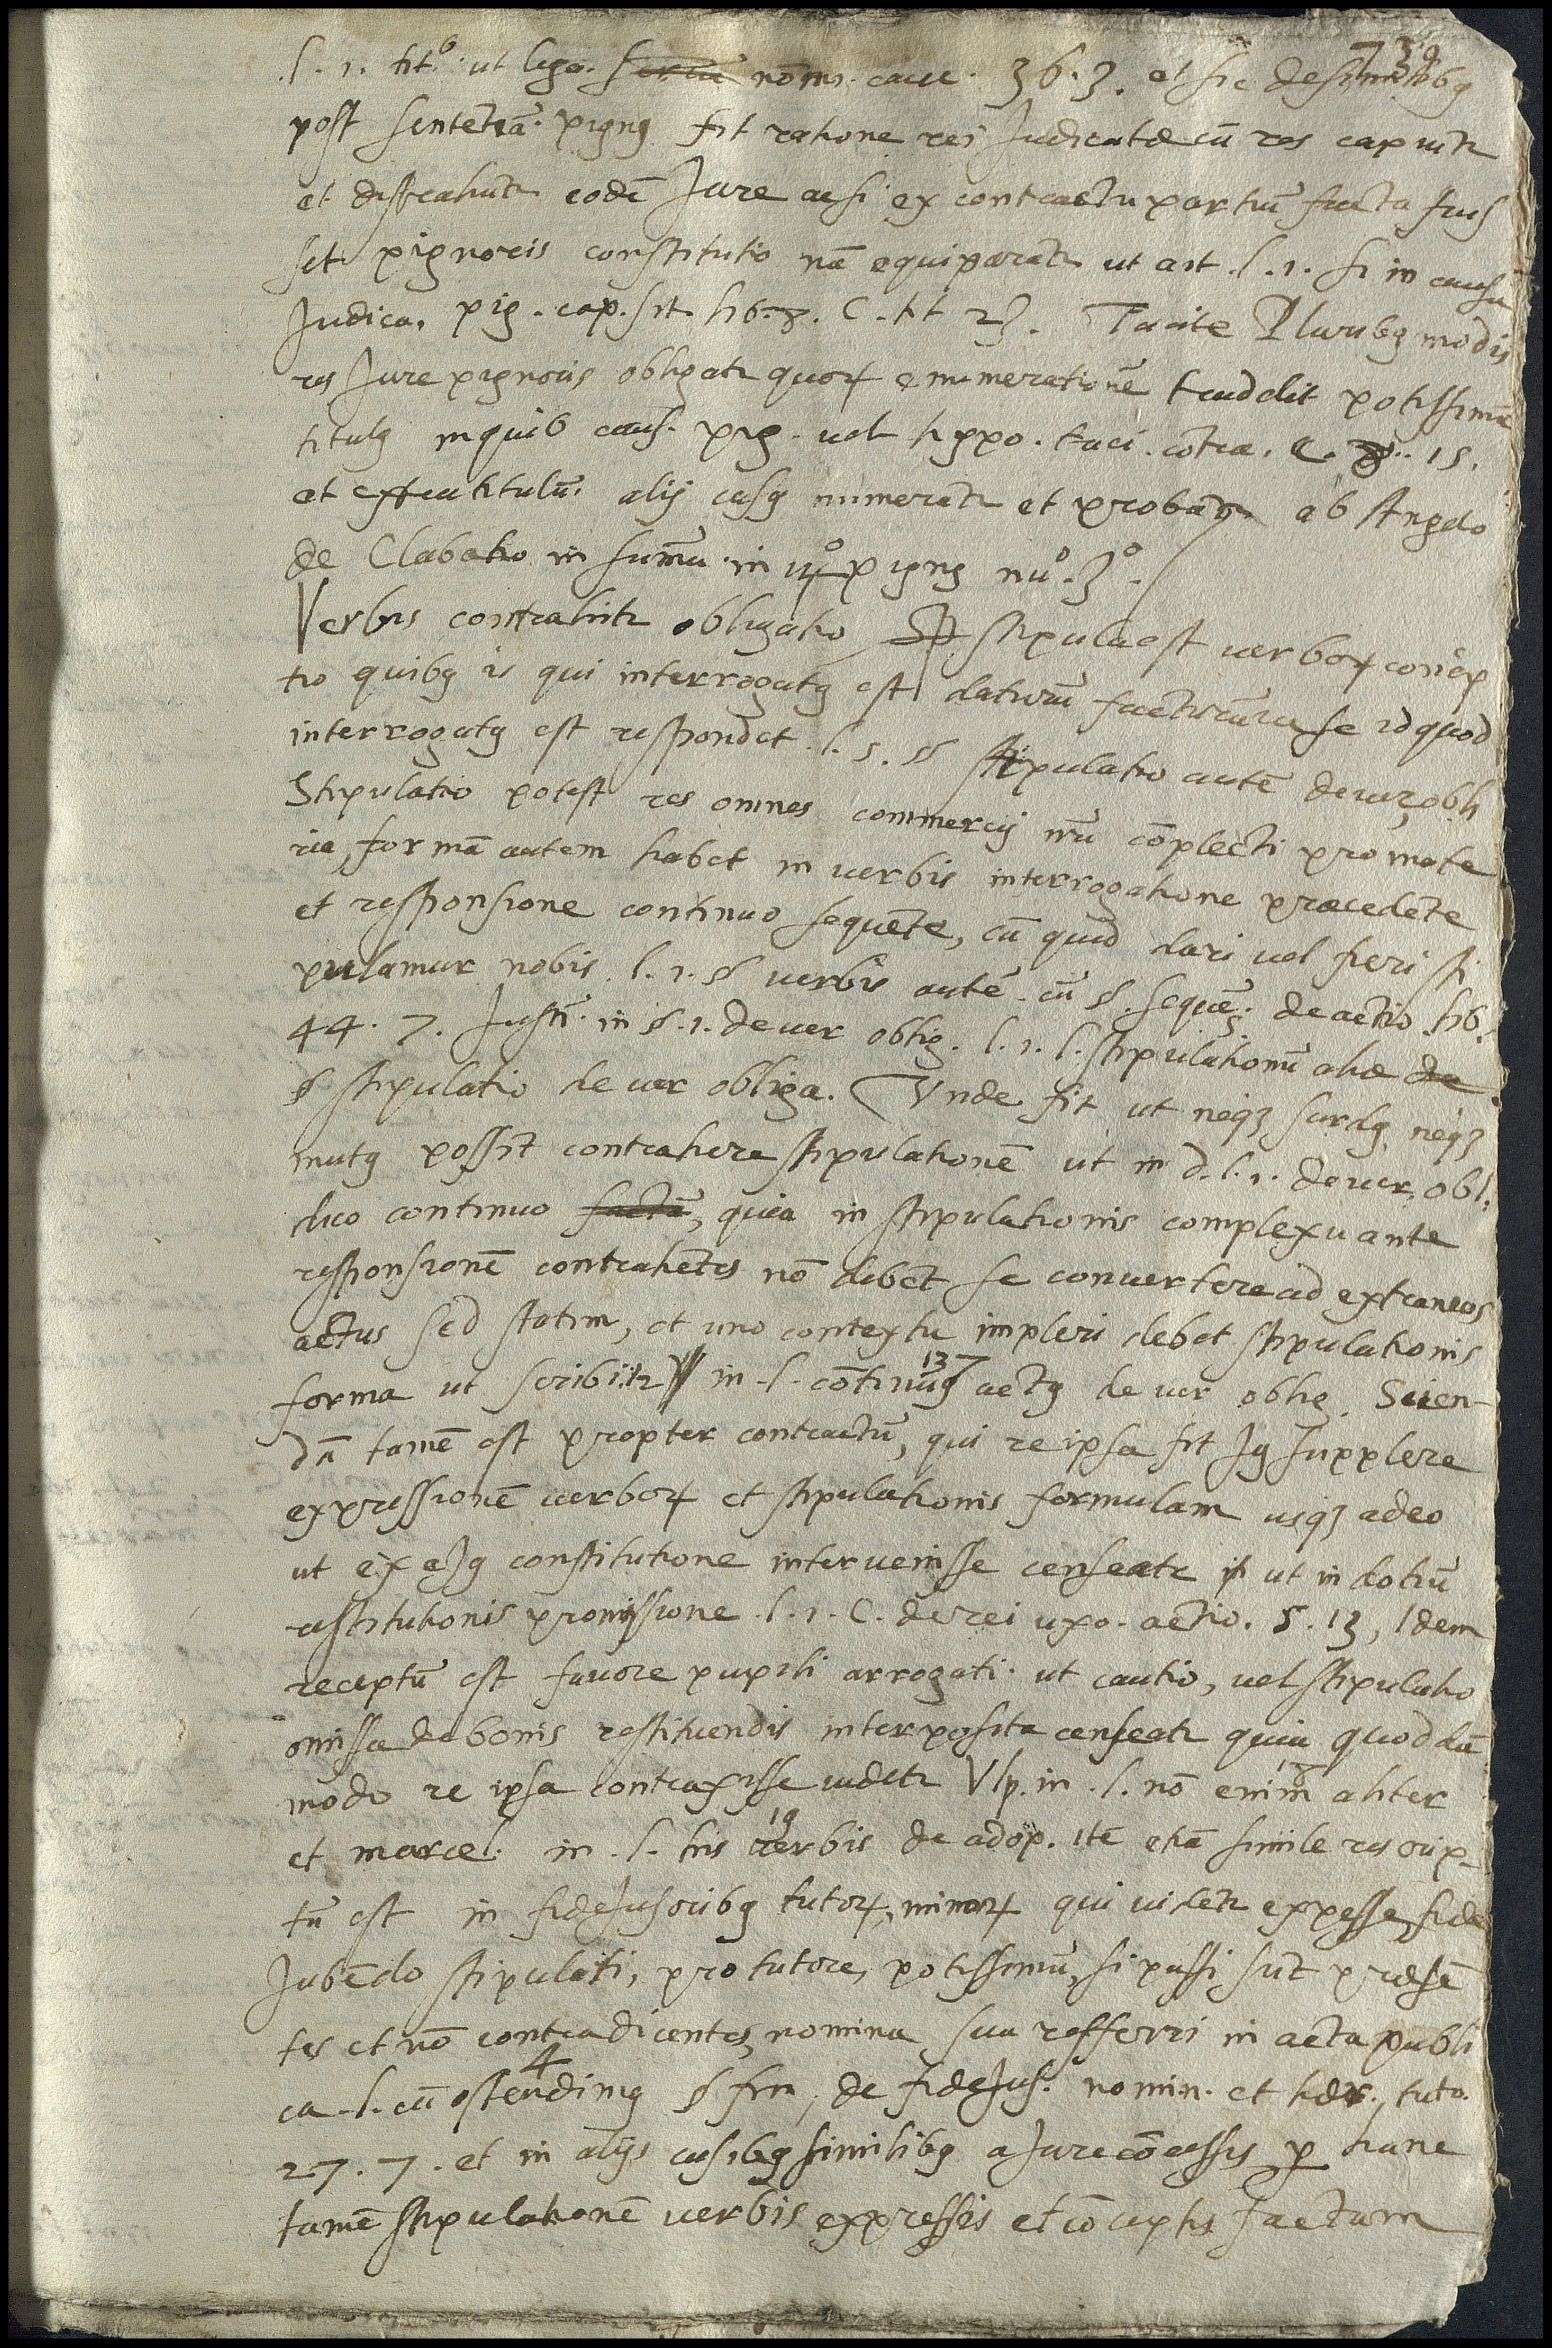 l. 1. tit.º ut lega. nomi. caue. 36. 3. et sic de similibꝰ
post sentētiā. pignꝰ fit ratione rei Judicatæ cū res capiūtr
et distrahūtr eodē Jure acsi ex contractu partiū facta fuis
set pignoris constitutio nā equiparatr ut ait. l. 1. si in causa
Judica. pig. cap. sit. lib. 8. C. tit 23. Tacite Pluribꝰ modis
res Jure pignoris obligatr quoꝝ enumerationē traddit potissimū
titulꝰ inquib caus. pig. uel hyppo. taci. cōtra. C. 8. 15.
et extra titulū. alij casꝰ numerātr et probātr ab Angelo
de Clabatio in suma. in uº pignꝰ nuº. 3º.
Verbis contrahitr obligatio stipula est uerboꝝ concep
tio quibꝰ is qui interrogatꝰ est daturū facturūue se id quod
interrogatꝰ est respondet. l. 5. § stipulatio autē de uer, obli
Stipulatio potest res omnes commercij nrū cōplecti pro mate
ria, formā autem habet in uerbis interrogatione præcedēte
et responsione continuo sequēte, cū quid dari uel fieri sti
pulamur nobis. l. 1. § uerbis autē. cū §. sequē. de actio. lib.
44. 7. Justi. in §. 1. de uer oblig. l. 1. l. stipulationū aliæ de
§ stipulatio de uer obliga. Vnde fit ut neqꝫ surdꝰ neqꝫ
mutꝰ possit contrahere stipulationē ut in d. l. 1. de uer. obl.
dico continuo factā, quia in stipulationis complexu ante
responsionē contrahētes nō debēt se conuertere ad extraneos
actus sed statim, et uno contextu impleri debet stipulationis
forma ut scribitr in. l. cōtinuꝰ 137 actꝰ de uer oblig. Scien-
dū tamē est propter contractū, qui re ipsa fit Jꝰ supplere
expressionē uerboꝝ et stipulationis formulam usqꝫ adeo
ut ex eJꝰ constitutione interuenisse censeatr ut in dotiū
restitutionis promissione. l. 1. C. de rei uxo. actio. 5. 13, Idem
receptū est fauore pupili arrogati. ut cautio, uel stipulatio
omissa de bonis restituendis interposita censeatr quia quoddā
modo re ipsa contraxisse uidetr Vlp. in. l. nō enim aliter
et marcel. in. l. his 19 uerbis de adop. itē etiā simile rescrip-
tū est in fideJussoribꝰ tutoꝝ, minoꝝ qui uidētr expesse, fide
Jubēdo stipulati, pro tutore, potissimū, si passi sūt præsē
tes et nō contradicentes, nomina sua refferri in acta publi
ca. l. cū ostendimꝰ 4 § fin, de fideJus. nomin. et hær. tuto.
27. 7. et in alijs casibꝰ similibꝰ a Jure cōcessis ꝑ hanc
tamē stipulationē uerbis expressis et cōceptis factam